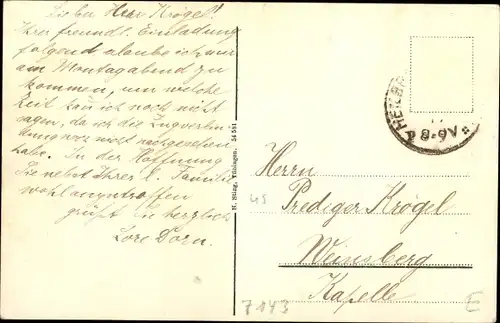 Lieber Herr Krögel!
Ihrer freundl. Einladung
folgend erlaube ich mir
am Montagabend zu
kommen, um welche
Zeit kan ich noch nicht
sagen, da ich die Zugverbin
dung noch nicht nachgesehen
habe. In der Hoffnung
Sie nebst Ihrer l. Familie
wohl anzutreffen
grüßt Sie herzlich
Lore Dorn.
54541
8-9V
Herrn
Prediger Krögel
Weinsberg
Kapelle
45
7143
E